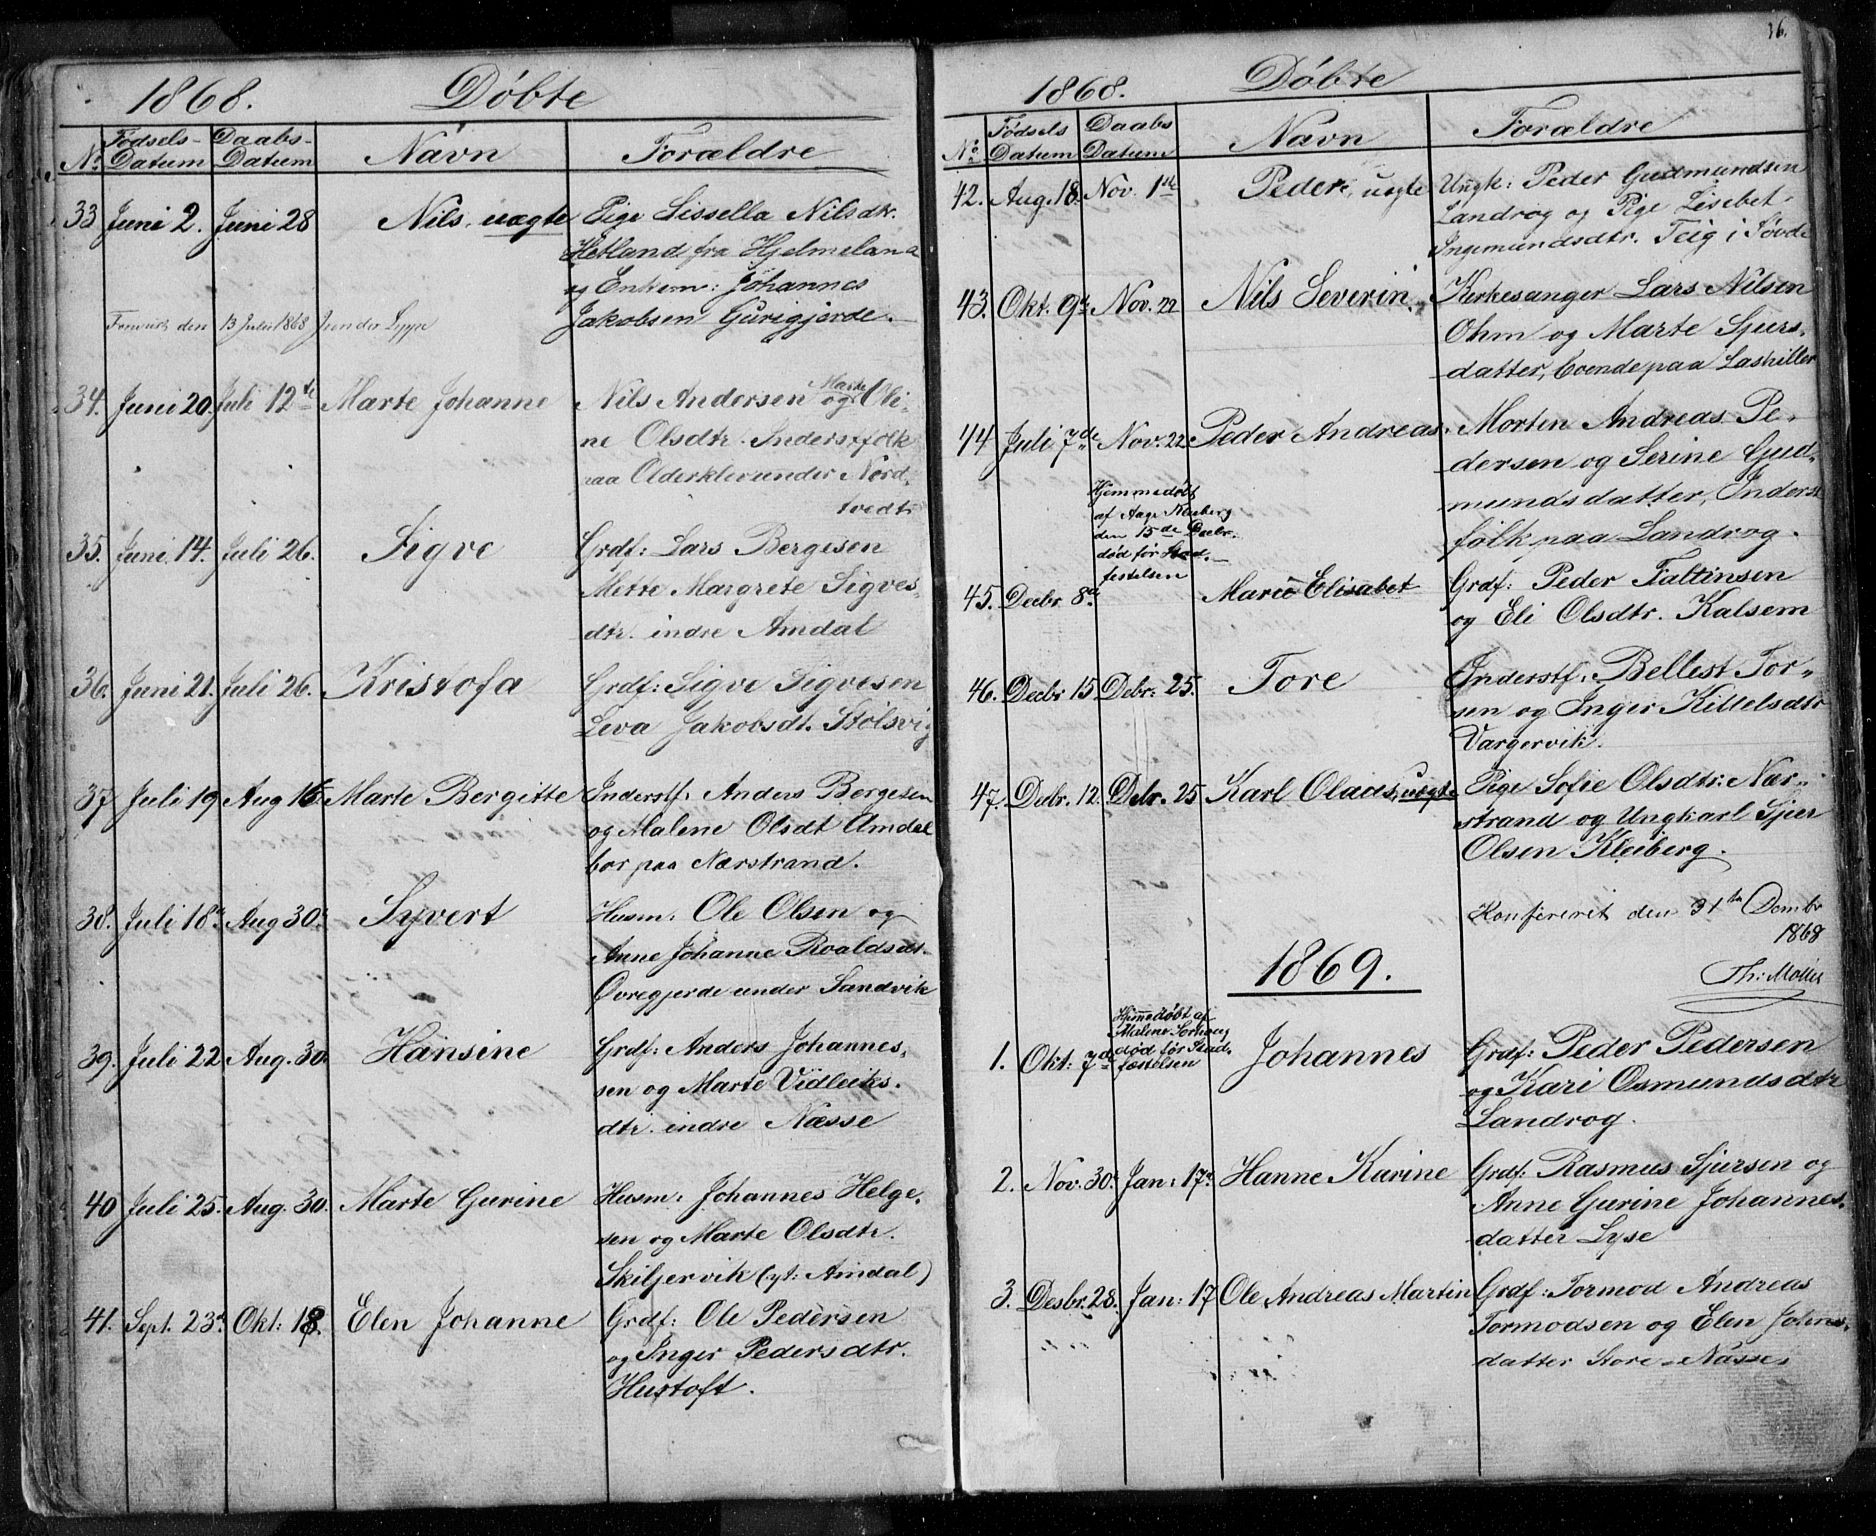 1868. Döbte
No. Fødsels-Datum Daabs-Datum Navn Forældre
33 Juni 2. Juni 28 Nils, uægte Pige Sissella Nilsdtr.
Hetland fra Hjelmeland
og Enkem: Johannes
Jakobsen Gurigjerde.
den 13 Juli 1868
34. Juni 20. Juli 12te Marte Johanne Nils Andersen og Marte Oli-
ne Olsdtr. Inderstfolk
paa Olderklev under Nord
tvedt
35. Juni 14. Juli 26. Sigve Grdf: Lars Bergesen
Mette Margrete Sigves
dtr. indre Amdal
36. Juni 21. Juli 26. Kristofa Grdf: Sigve Sigvesen
Leva Jakobsdt. Stölsvig
37 Juli 19 Aug 16 Marte Bergitte Inderstf. Anders Bergesen
og Malene Olsdt Amdal
bor paa Nærstrand.
38. Juli 18de Aug 30. Syvert Husm: Ole Olsen og
Anne Johanne Roaldsdt.
Øvregjerde under Sandvik
39. Juli 22 Aug. 30. Hansine Grdf: Anders Johannes,
sen og Marte Vidleiks.
dtr. indre Næsse
40 Juli 25. Aug. 30. Marte Gurine Husm: Johannes Helge.
sen og Marte Olsdtr.
Skiljervik (yt: Amdal)
41. Sept. 23de Okt: 18. Elen Johanne Grdf: Ole Pedersen
og Inger Pedersdtr.
Hustoft.
36.
1868. Döbte
No. Fødsels Datum Daabs Datum Navn Forældre
42. Aug. 18. Nov. 1ste Peder, uegte Ungk: Peder Gudmundsen
Landrog og Pige Lisebet
Ingemundsdtr. Teig i Søvde
43. Okt. 9de Nov. 22 Nils Severin. Kirkesanger Lars Nilsen
Ohm og Marte Sjurs.
datter, boende paa Lashiller
44 Juli 7de Nov. 22 Peder Andreas. Morten Andreas Pe-
dersen og Serine Gud,
mundsdatter, Inderst
folk paa Landrog.
Hjemmedøbt
af Aage
den 15de Decbr.
død før Stad.
festelsen
45. Decbr 8de Marie Elisabet Grdf: Peder Faltinsen
og Eli Olsdtr. Kalsem
46. Decbr 15 Debr: 25. Tore Inderstf. Bellest Tor-
sen og Inger Kittelsdtr
Vargervik.
47. Debr. 12. Debr. 25 Karl Olaus, uegte Pige Sofie Olsdtr: Nær-
strand og Ungkarl Sjur
Olsen Kleiberg.
Konfereret den 31te Decmbr
1868
1869.
Th: Møller
Hjemmedøbt af
Malene Sorhaug
død før Stad.
fæstelsen
1. Okt: 7de Johannes Grdf: Peder Pedersen
og Kari Osmundsdtr
Landrog.
2. Nov. 30. Jan: 17de Hanne Karine Grdf: Rasmus Sjursen og
Anne Gurine Johannes.
datter Lyse
3. Desbr. 28. Jan: 17 Ole Andreas Martin Grdf: Tormod Andreas
Tormodsen og Elen Johns.
datter Store-Næsse